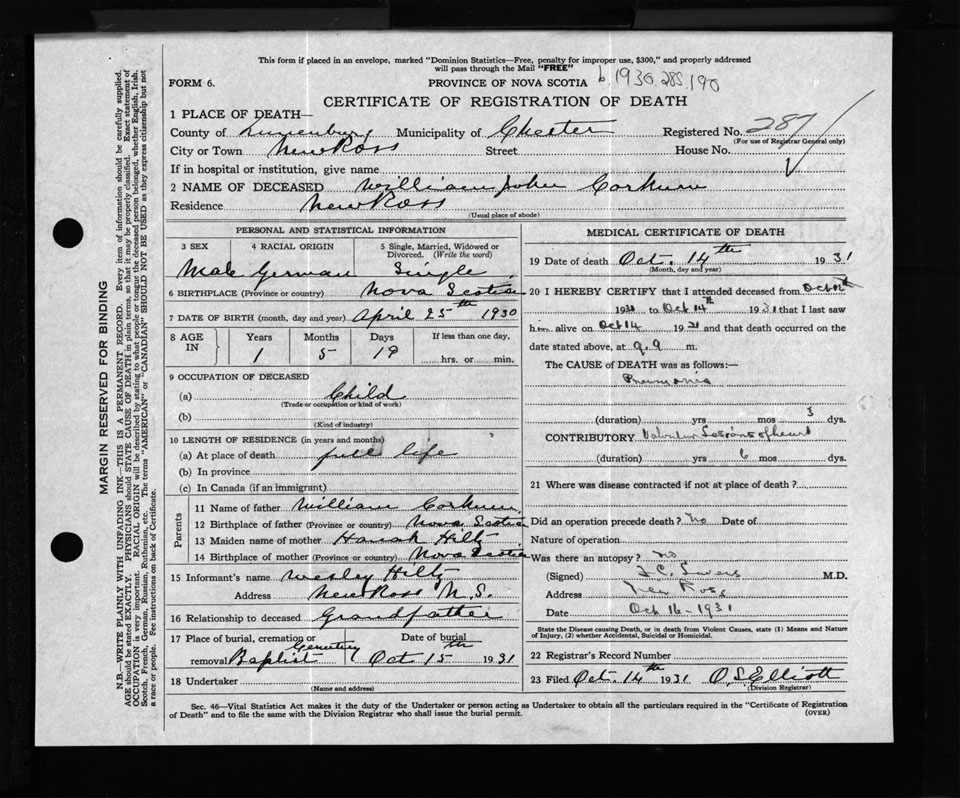 This form if placed in an envelope, marked "Dominion Statistics—Free, penalty for improper use, $300," and properly addressed
will pass through the Mail "FREE"
FORM 6.
PROVINCE OF NOVA SCOTIA
b. 1930 285 190
CERTIFICATE OF REGISTRATION OF DEATH
1 PLACE OF DEATH—
County of Lunenburg Municipality of Chester Registered No. 287
(For use of Registrar General only)
City or Town New Ross Street House No.
If in hospital or institution, give name
2 NAME OF DECEASED William John Corkum
Residence New Ross
(Usual place of abode)
PERSONAL AND STATISTICAL INFORMATION
3 SEX 4 RACIAL ORIGIN 5 Single, Married, Widowed or Divorced. (Write the word)
Male German Single
6 BIRTHPLACE (Province or country) Nova Scotia
7 DATE OF BIRTH (month, day and year) April 25th 1930
8 AGE IN Years Months Days If less than one day,
1 5 19 hrs. or min.
9 OCCUPATION OF DECEASED
(a) Child
(Trade or occupation or kind of work)
(b)
(Kind of industry)
10 LENGTH OF RESIDENCE (in years and months)
(a) At place of death full life
(b) In province
(c) In Canada (if an immigrant)
Parents
11 Name of father William Corkum
12 Birthplace of father (Province or country) Nova Scotia
13 Maiden name of mother Hanah Hiltz
14 Birthplace of mother (Province or country) Nova Scotia
15 Informant's name Wesley Hiltz
Address New Ross N.S.
16 Relationship to deceased Grandfather
17 Place of burial, cremation or Date of burial
removal Baptist Cemetery Oct 15th 1931
18 Undertaker
(Name and address)
MEDICAL CERTIFICATE OF DEATH
19 Date of death Oct. 14th 1931
(Month, day and year)
20 I HEREBY CERTIFY that I attended deceased from Oct 12th
1931 to Oct 14th 1931 that I last saw
him alive on Oct 14 1931 and that death occurred on the
date stated above, at 9.9 m.
The CAUSE of DEATH was as follows:—
Pneumonia
(duration) yrs mos 3 dys.
CONTRIBUTORY Valvular Lesions of heart
(duration) yrs 6 mos dys.
21 Where was disease contracted if not at place of death?
Did an operation precede death? No Date of
Nature of operation
Was there an autopsy? No
(Signed) M.D.
Address New Ross
Date Oct 16-1931
State the Disease causing Death, or in death from Violent Causes, state (1) Means and Nature
of Injury, (2) whether Accidental, Suicidal or Homicidal.
22 Registrar's Record Number
23 Filed Oct. 14th 1931 O. S. Elliott
(Division Registrar)
Sec. 46—Vital Statistics Act makes it the duty of the Undertaker or person acting as Undertaker to obtain all the particulars required in the "Certificate of Registration
of Death" and to file the same with the Division Registrar who shall issue the burial permit.
(OVER)
MARGIN RESERVED FOR BINDING
N.B.—WRITE PLAINLY WITH UNFADING INK—THIS IS A PERMANENT RECORD. Every item of information should be carefully supplied.
AGE should be stated EXACTLY. PHYSICIANS should STATE CAUSE OF DEATH in plain terms, so that it may be properly classified. Exact statement of
OCCUPATION is very important. RACIAL ORIGIN will be described by stating to what people or tongue the deceased person belonged, whether English, Irish,
Scotch, French, German, Russian, Ruthenian, etc. The terms "AMERICAN" or "CANADIAN" SHOULD NOT BE USED as they express citizenship but not
a race or people. See instructions on back of Certificate.